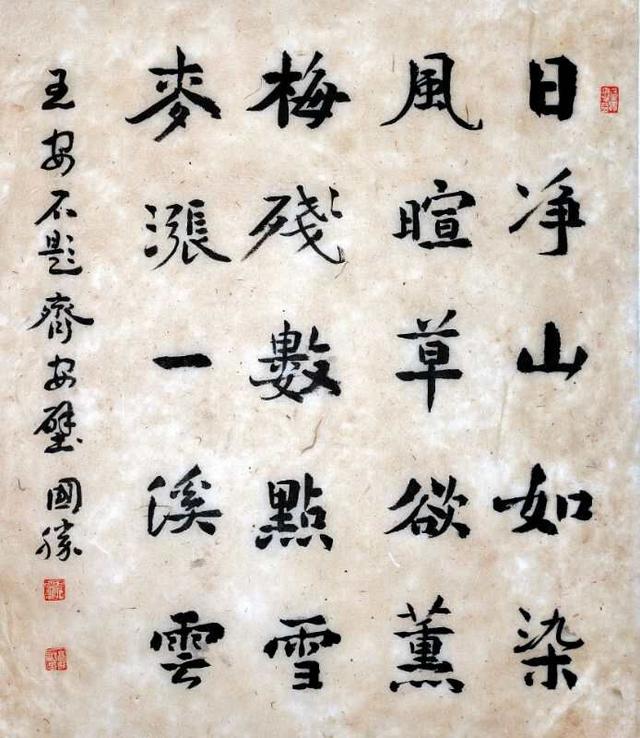 日净山如染
風暄草欲薰
梅殘數點雪
麥漲一溪雲
王安石題齊安壁 國勝